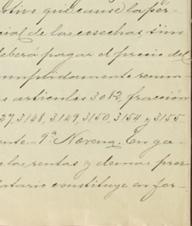 que cause la pér-
cial de las cosechas, sino
deberá pagar el precio del
cumplidamente renun
s artículos 3082, fracción
27, 3148, 3149, 3150, 3154 y 3155
ante. 9ª Novena. En ga-
las rentas y demás pres
tatario constituye en for-